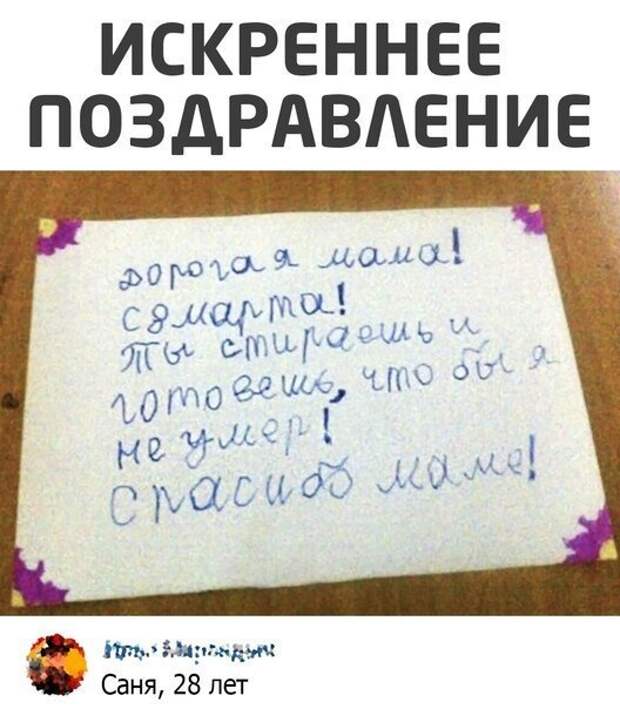 ИСКРЕННЕЕ
ПОЗДРАВЛЕНИЕ
дорогая мама!
с 8 марта!
Ты стираешь и
готовешь, что бы я
не умер!
спасибо маме!
Саня, 28 лет